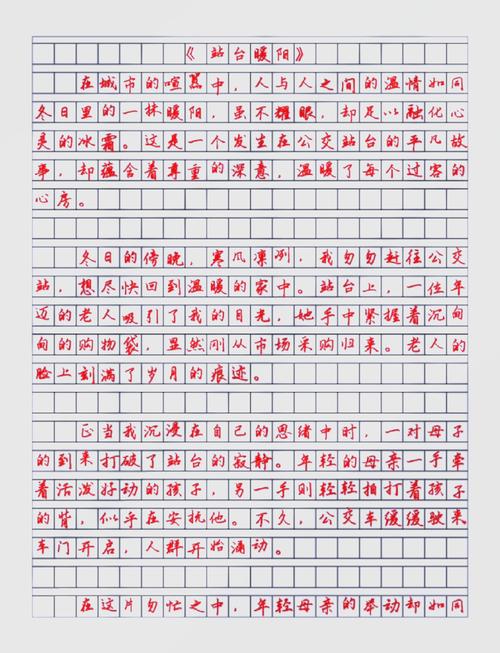 《站台暖阳》
在城市的喧嚣中，人与人之间的温情如同
冬日里的一抹暖阳，虽不耀眼，却足以融化心
灵的冰霜。这是一个发生在公交站台的平凡故
事，却蕴含着尊重的深意，温暖了每个过客的
心房。
冬日的傍晚，寒风凛冽，我匆匆赶往公交
站，想尽快回到温暖的家中。站台上，一位年
迈的老人吸引了我的目光，她手中紧握着沉甸
甸的购物袋，显然刚从市场采购归来。老人的
脸上刻满了岁月的痕迹。
正当我沉浸在自己的思绪中时，一对母子
的到来打破了站台的寂静。年轻的母亲一手牵
着活泼好动的孩子，另一手则轻轻拍打着孩子
的背，似乎在安抚他。不久，公交车缓缓驶来
车门开启，人群开始涌动。
在这片匆忙之中，年轻母亲的举动却如同